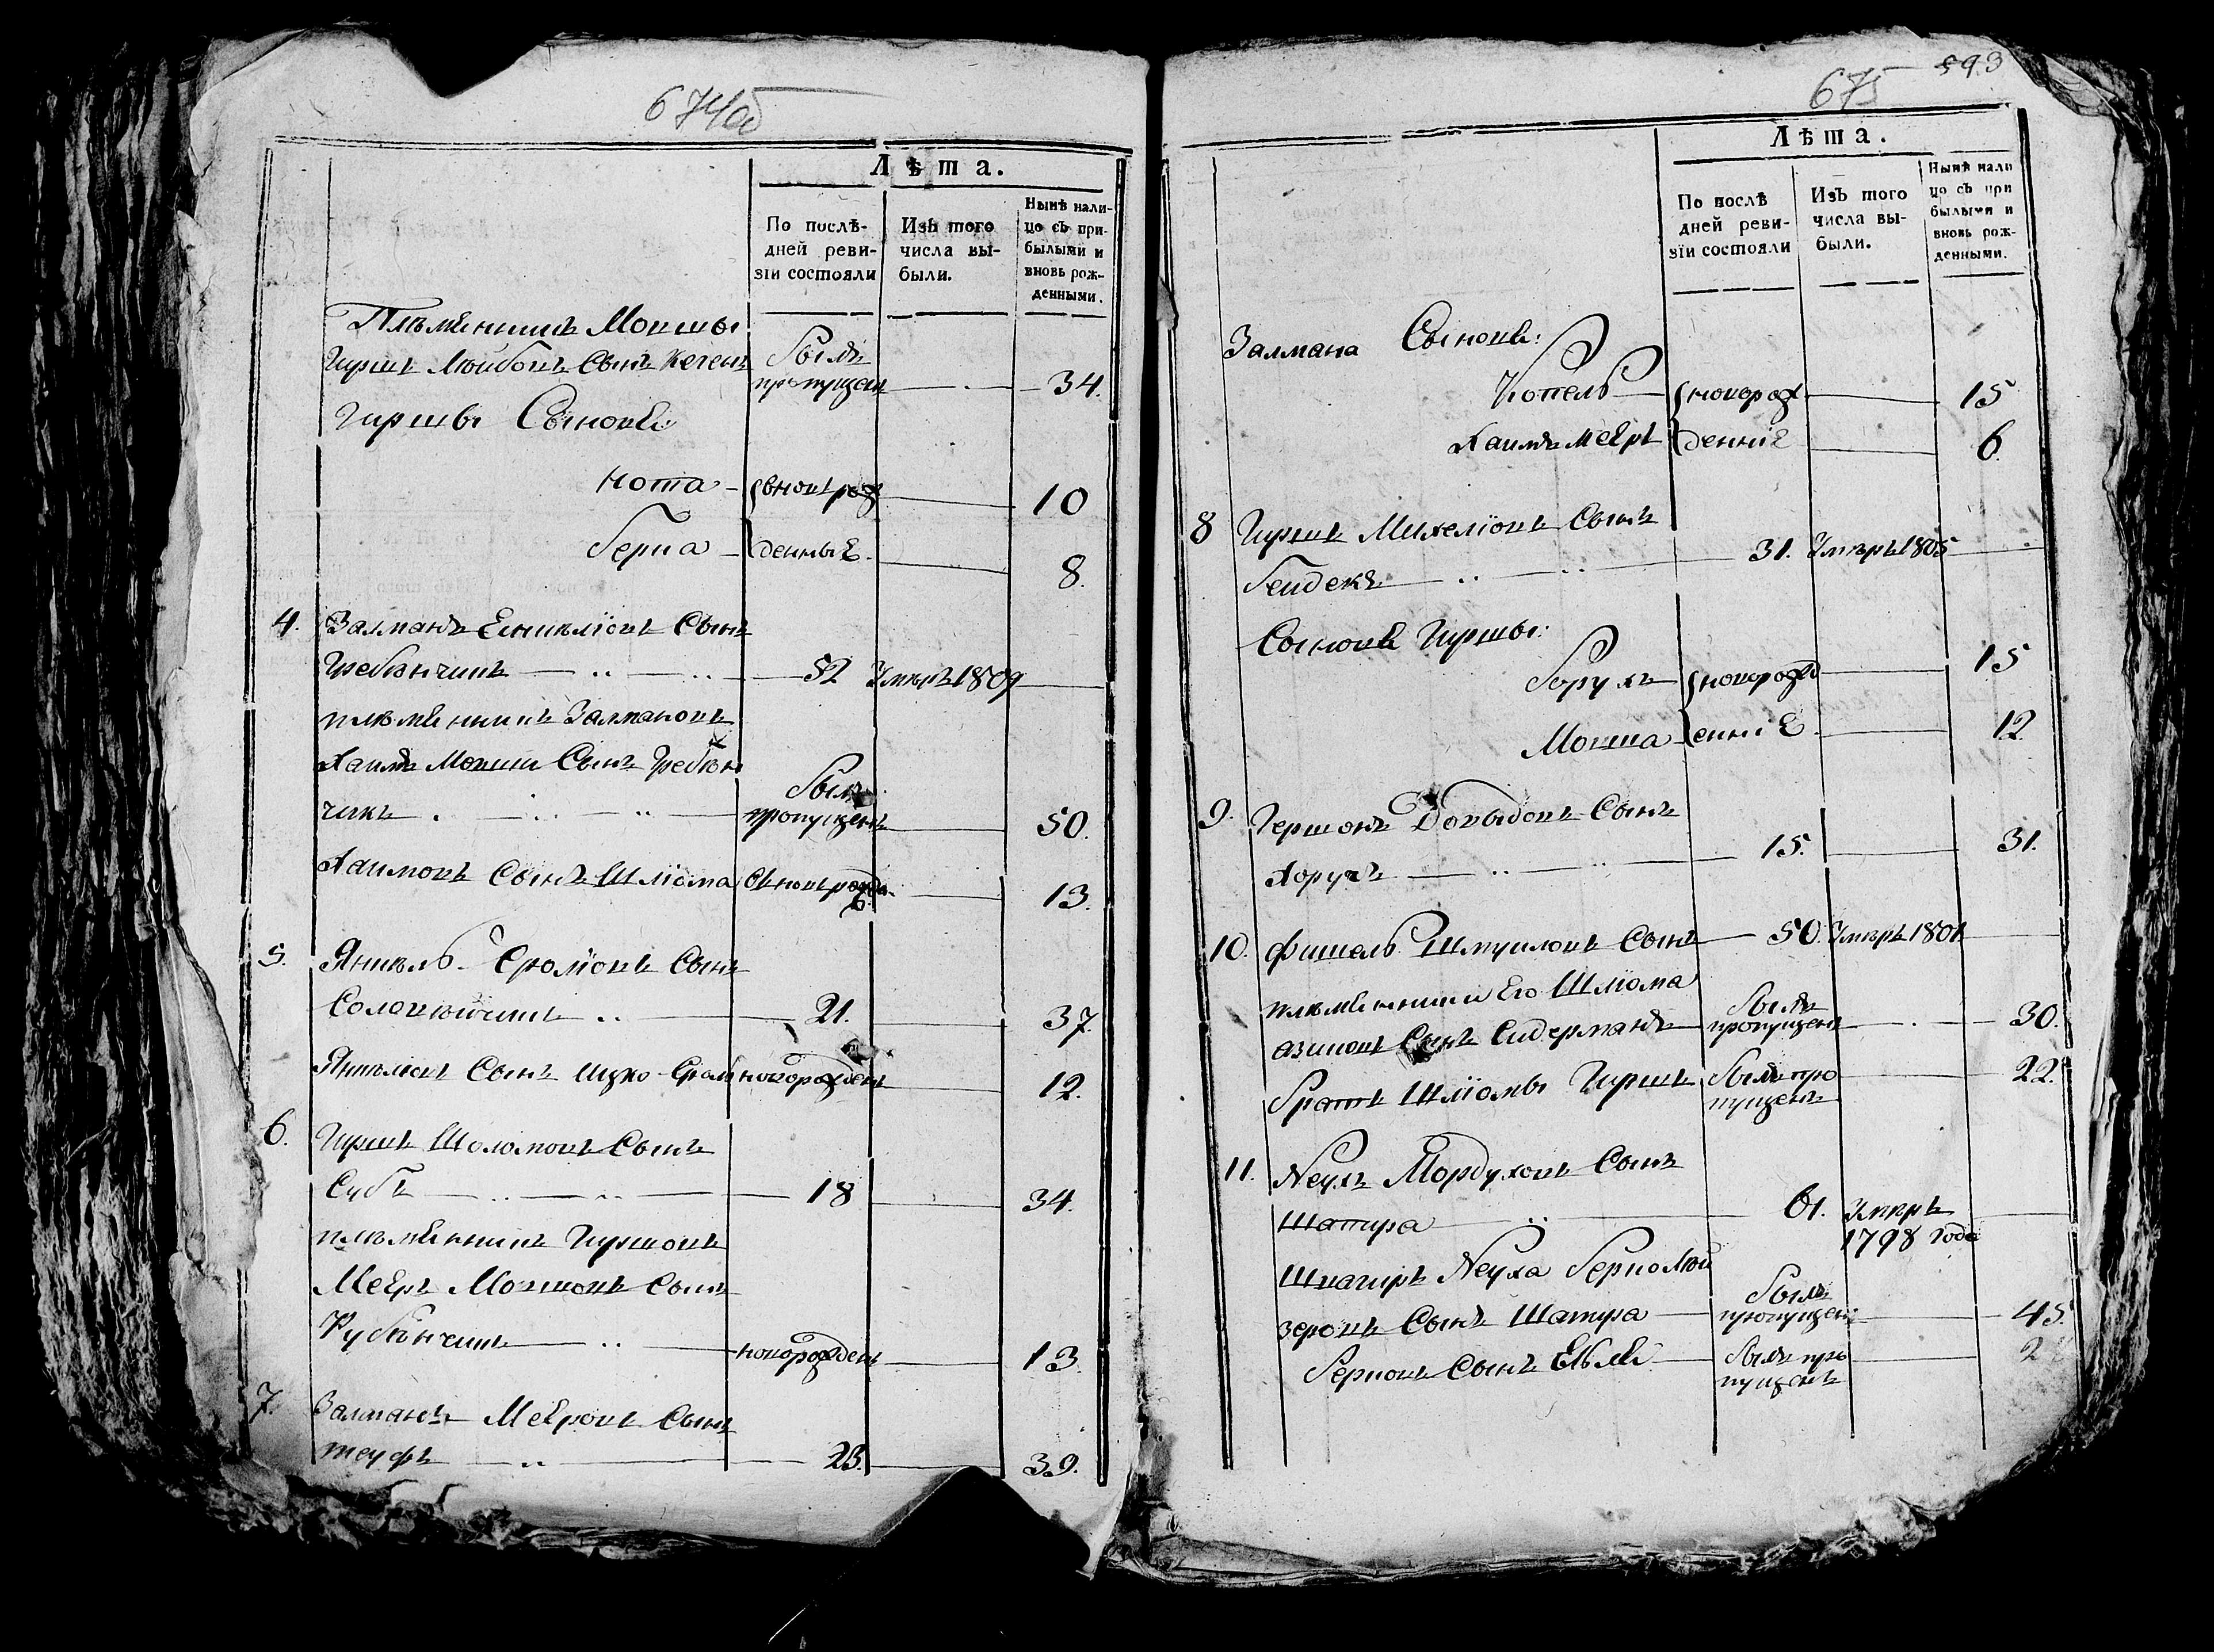 674об
Лѣта.
По послѣ-
дней реви-
зіи состояли
Изъ того
числа вы-
были.
Нынѣ нали-
цо съ при-
былыми и
вновь рож-
денными.
Племянникъ Мовшы
Гиршъ Лейбовъ Сынъ былъ
пропущенъ 34.
Гиршы Сыновѣ
Нота вновь рож 10
Берка денныѣ 8.
4. Залманъ Сынъ
Гребѣнчикъ 52 Умеръ 1809
племянникъ Залмановъ
Хаимъ Мовши Сынъ Гребѣн
чикъ былъ пропущенъ 50.
Хаимовъ Сынъ Шліома вновь рожд. 13.
5. Янкель Сролiовъ Сынъ
21. 37.
Янкелiовъ Сынъ Ицко-Сроль новорожденъ 12.
6. Гиршъ Шоломовъ Сынъ
Субъ 18 34.
племянникъ Гиршовъ
Меѣръ Мовшовъ Сынъ
новорожденъ 13
7. Залманъ Меѣровъ Сынъ
23. 39.
675 593
Лѣта.
По послѣ
дней реви-
зіи состояли
Изъ того
числа вы-
были.
Нынѣ нали
цо съ при
былыми и
вновь рож-
денными.
Залмана Сыновѣ:
Копель новорож 15
Хаимъ Меѣръ денніѣ 6.
8 Гиршъ Михелiовъ Сынъ
31. Умеръ 1805
Сыновѣ Гиршы:
Борухъ новорожд 15
Мовша енніѣ 12
9. Гершонъ Довыдовъ Сынъ
15. 31.
10. Фишель Шмуиловъ Сынъ 50. Умеръ 1801
племянники Его Шліома
Сынъ Сидерманъ былъ
пропущенъ 30.
Братъ Шліомы Гиршъ былъ про
пущенъ 22.
11. Neухъ Мордуховъ Сынъ
Шапира 61. Умеръ
1798 года
Швагиръ Neуха Берко Лей
зеровъ Сынъ Шапира былъ
пропущенъ 45.
Берковъ Сынъ былъ про
пущенъ